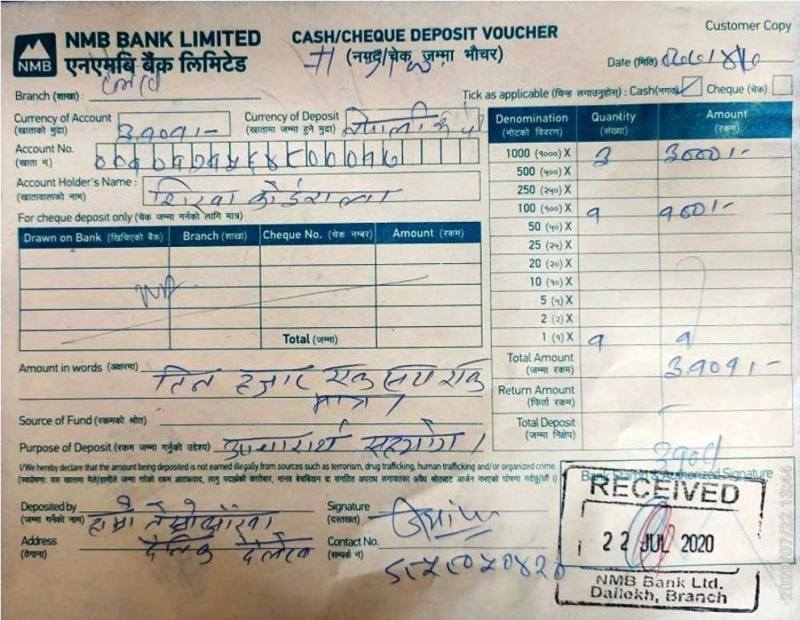 Customer Copy
NMB BANK LIMITED
एनएमबि बैंक लिमिटेड
NMB
CASH/CHEQUE DEPOSIT VOUCHER
(नगद/चेक जम्मा भौचर)
Date (मिति)
Branch (शाखा) :
Tick as applicable (चिन्ह लगाउनुहोस्) : Cash(नगद) Cheque (चेक)
Currency of Account
(खाताको मुद्रा)
३,१०१।-
Currency of Deposit
(खातामा जम्मा हुने मुद्रा)
Account No.
(खाता नं)
Account Holder's Name :
(खातावालाको नाम)
For cheque deposit only (चेक जम्मा गर्नको लागि मात्र)
Drawn on Bank (खिचिएको बैंक) Branch (शाखा) Cheque No. (चेक नम्बर) Amount (रकम)
Total (जम्मा)
Denomination (नोटको विवरण) Quantity (संख्या) Amount (रकम)
1000 (१०००) X ३ ३०००।-
500 (५००) X
250 (२५०) X
100 (१००) X १ १००।-
50 (५०) X
25 (२५) X
20 (२०) X
10 (१०) X
5 (५) X
2 (२) X
1 (१) X १ १
Total Amount
(जम्मा रकम)
३,१०१।-
Return Amount
(फिर्ता रकम)
Total Deposit
(जम्मा निक्षेप)
Amount in words (अक्षरमा) तिन हजार एक सय एक
मात्र।
Source of Fund (रकमको श्रोत)
Purpose of Deposit (रकम जम्मा गर्नुको उद्देश्य) उपचारार्थ सहयोग।
I/We hereby declare that the amount being deposited is not earned illegally from sources such as terrorism, drug trafficking, human trafficking and/or organized crime.
Deposited by
(जम्मा गर्नेको नाम)
Signature
(दस्तखत)
Address
(ठेगाना)
दैलेख
Contact No.
(सम्पर्क नं)
Authorized Signature
RECEIVED
22 JUL 2020
NMB Bank Ltd.
Dailekh, Branch
2020/07/22 13:44